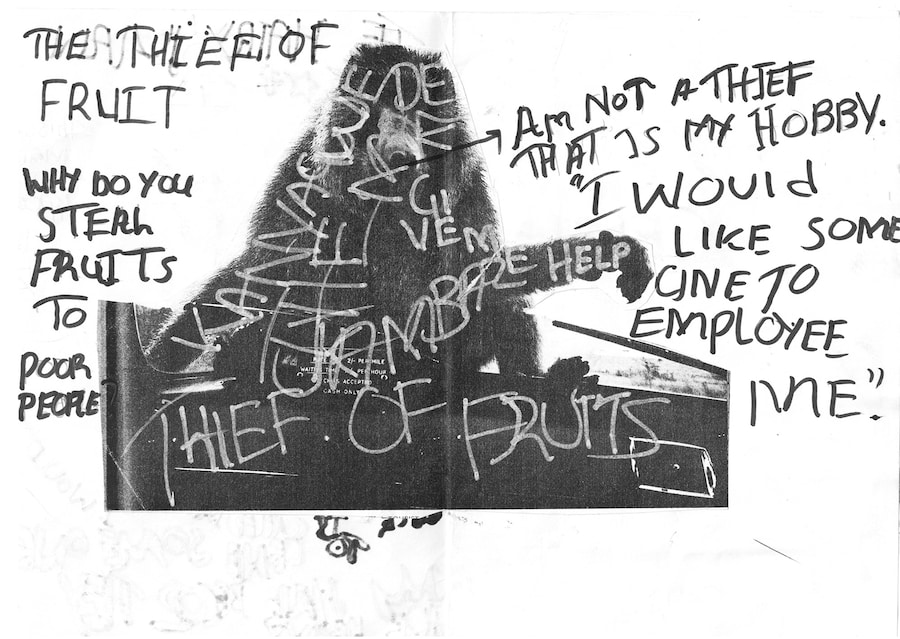 THE THIEF OF
FRUIT
WHY DO YOU
STEAL
FRUITS
TO
POOR
PEOPLE
AM NOT A THIEF
THAT IS MY HOBBY.
"I WOULD
LIKE SOME
ONE TO
EMPLOYEE
ME".
GI
VEM
HELP
2/- PER MILE
PER HOUR
ACCEPTED
CASH ONLY
THIEF OF FRUITS